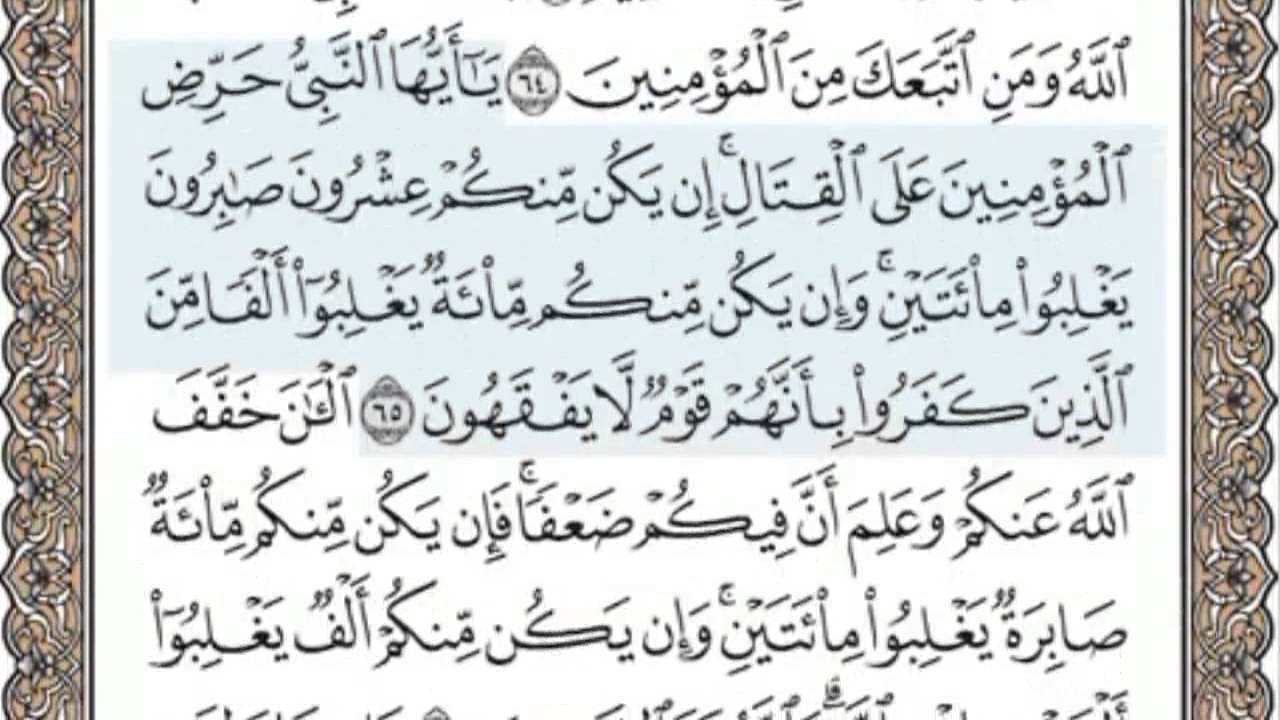 ٱللَّهُ وَمَنِ ٱتَّبَعَكَ مِنَ ٱلْمُؤْمِنِينَ ٦٤ يَـٰٓأَيُّهَا ٱلنَّبِىُّ حَرِّضِ
ٱلْمُؤْمِنِينَ عَلَى ٱلْقِتَالِ ۚ إِن يَكُن مِّنكُمْ عِشْرُونَ صَـٰبِرُونَ
يَغْلِبُوا۟ مِا۟ئَتَيْنِ ۚ وَإِن يَكُن مِّنكُم مِّا۟ئَةٌ يَغْلِبُوٓا۟ أَلْفًا مِّنَ
ٱلَّذِينَ كَفَرُوا۟ بِأَنَّهُمْ قَوْمٌ لَّا يَفْقَهُونَ ٦٥ ٱلْـَٔـٰنَ خَفَّفَ
ٱللَّهُ عَنكُمْ وَعَلِمَ أَنَّ فِيكُمْ ضَعْفًا ۚ فَإِن يَكُن مِّنكُم مِّا۟ئَةٌ
صَابِرَةٌ يَغْلِبُوا۟ مِا۟ئَتَيْنِ ۚ وَإِن يَكُن مِّنكُمْ أَلْفٌ يَغْلِبُوٓا۟